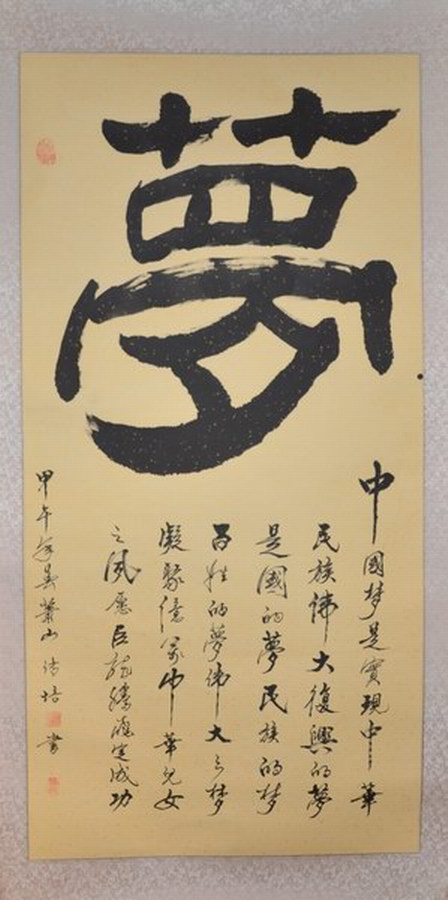 夢
中國梦是實現中華
民族偉大復興的夢
是國的夢民族的梦
百姓的夢偉大之梦
凝聚億萬中華兒女
之夙愿巨龍騰飛定成功
甲午年蕭山培書